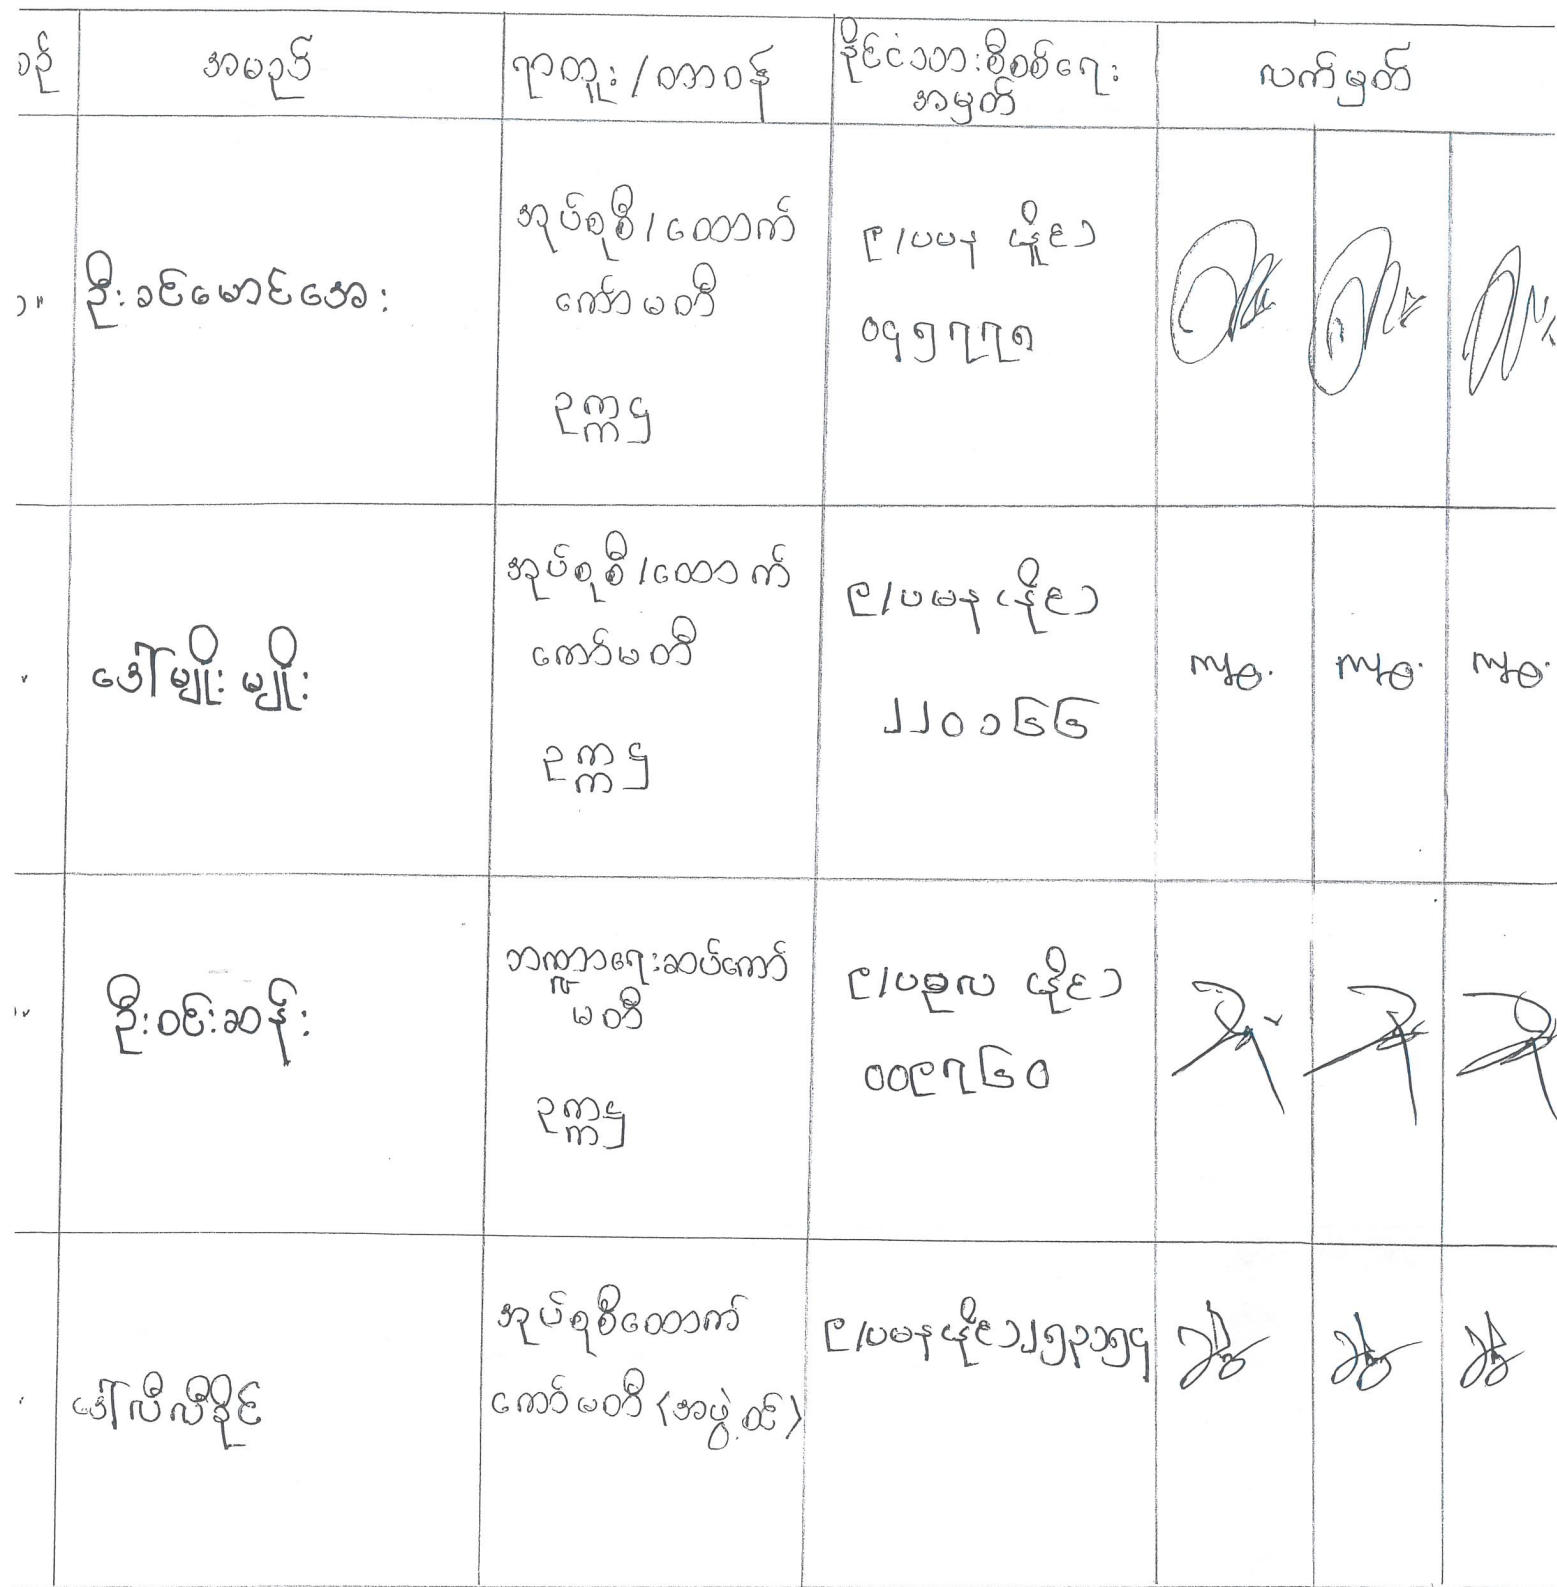 စဉ် အမည် ရာထူး/တာဝန် နိုင်ငံသားစီစစ်ရေး လက်မှတ်
အမှတ်
၁။ ဦးခင်မောင်အေး
အုပ်စုစီ/ထောက်
ကော်မတီ
ဥက္ကဌ
၉/ပမန (နိုင်)
၀၄၅၇၇၈
ဒေါ်မျိုးမျိုး
အုပ်စုစီ/ထောက်
ကော်မတီ
ဥက္ကဌ
၉/ပမန (နိုင်)
၂၂၀၁၆၆
ဦးဝင်းဆန်း
ဘဏ္ဍာရေးဆပ်ကော်
မတီ
ဥက္ကဌ
၉/ပဥလ (နိုင်)
၀၀၉၇၆၀
ဒေါ်လီလီခိုင်
အုပ်စုစီထောက်
ကော်မတီ (အဖွဲ့ဝင်)
၉/ပမန(နိုင်)၂၅၃၁၅၄